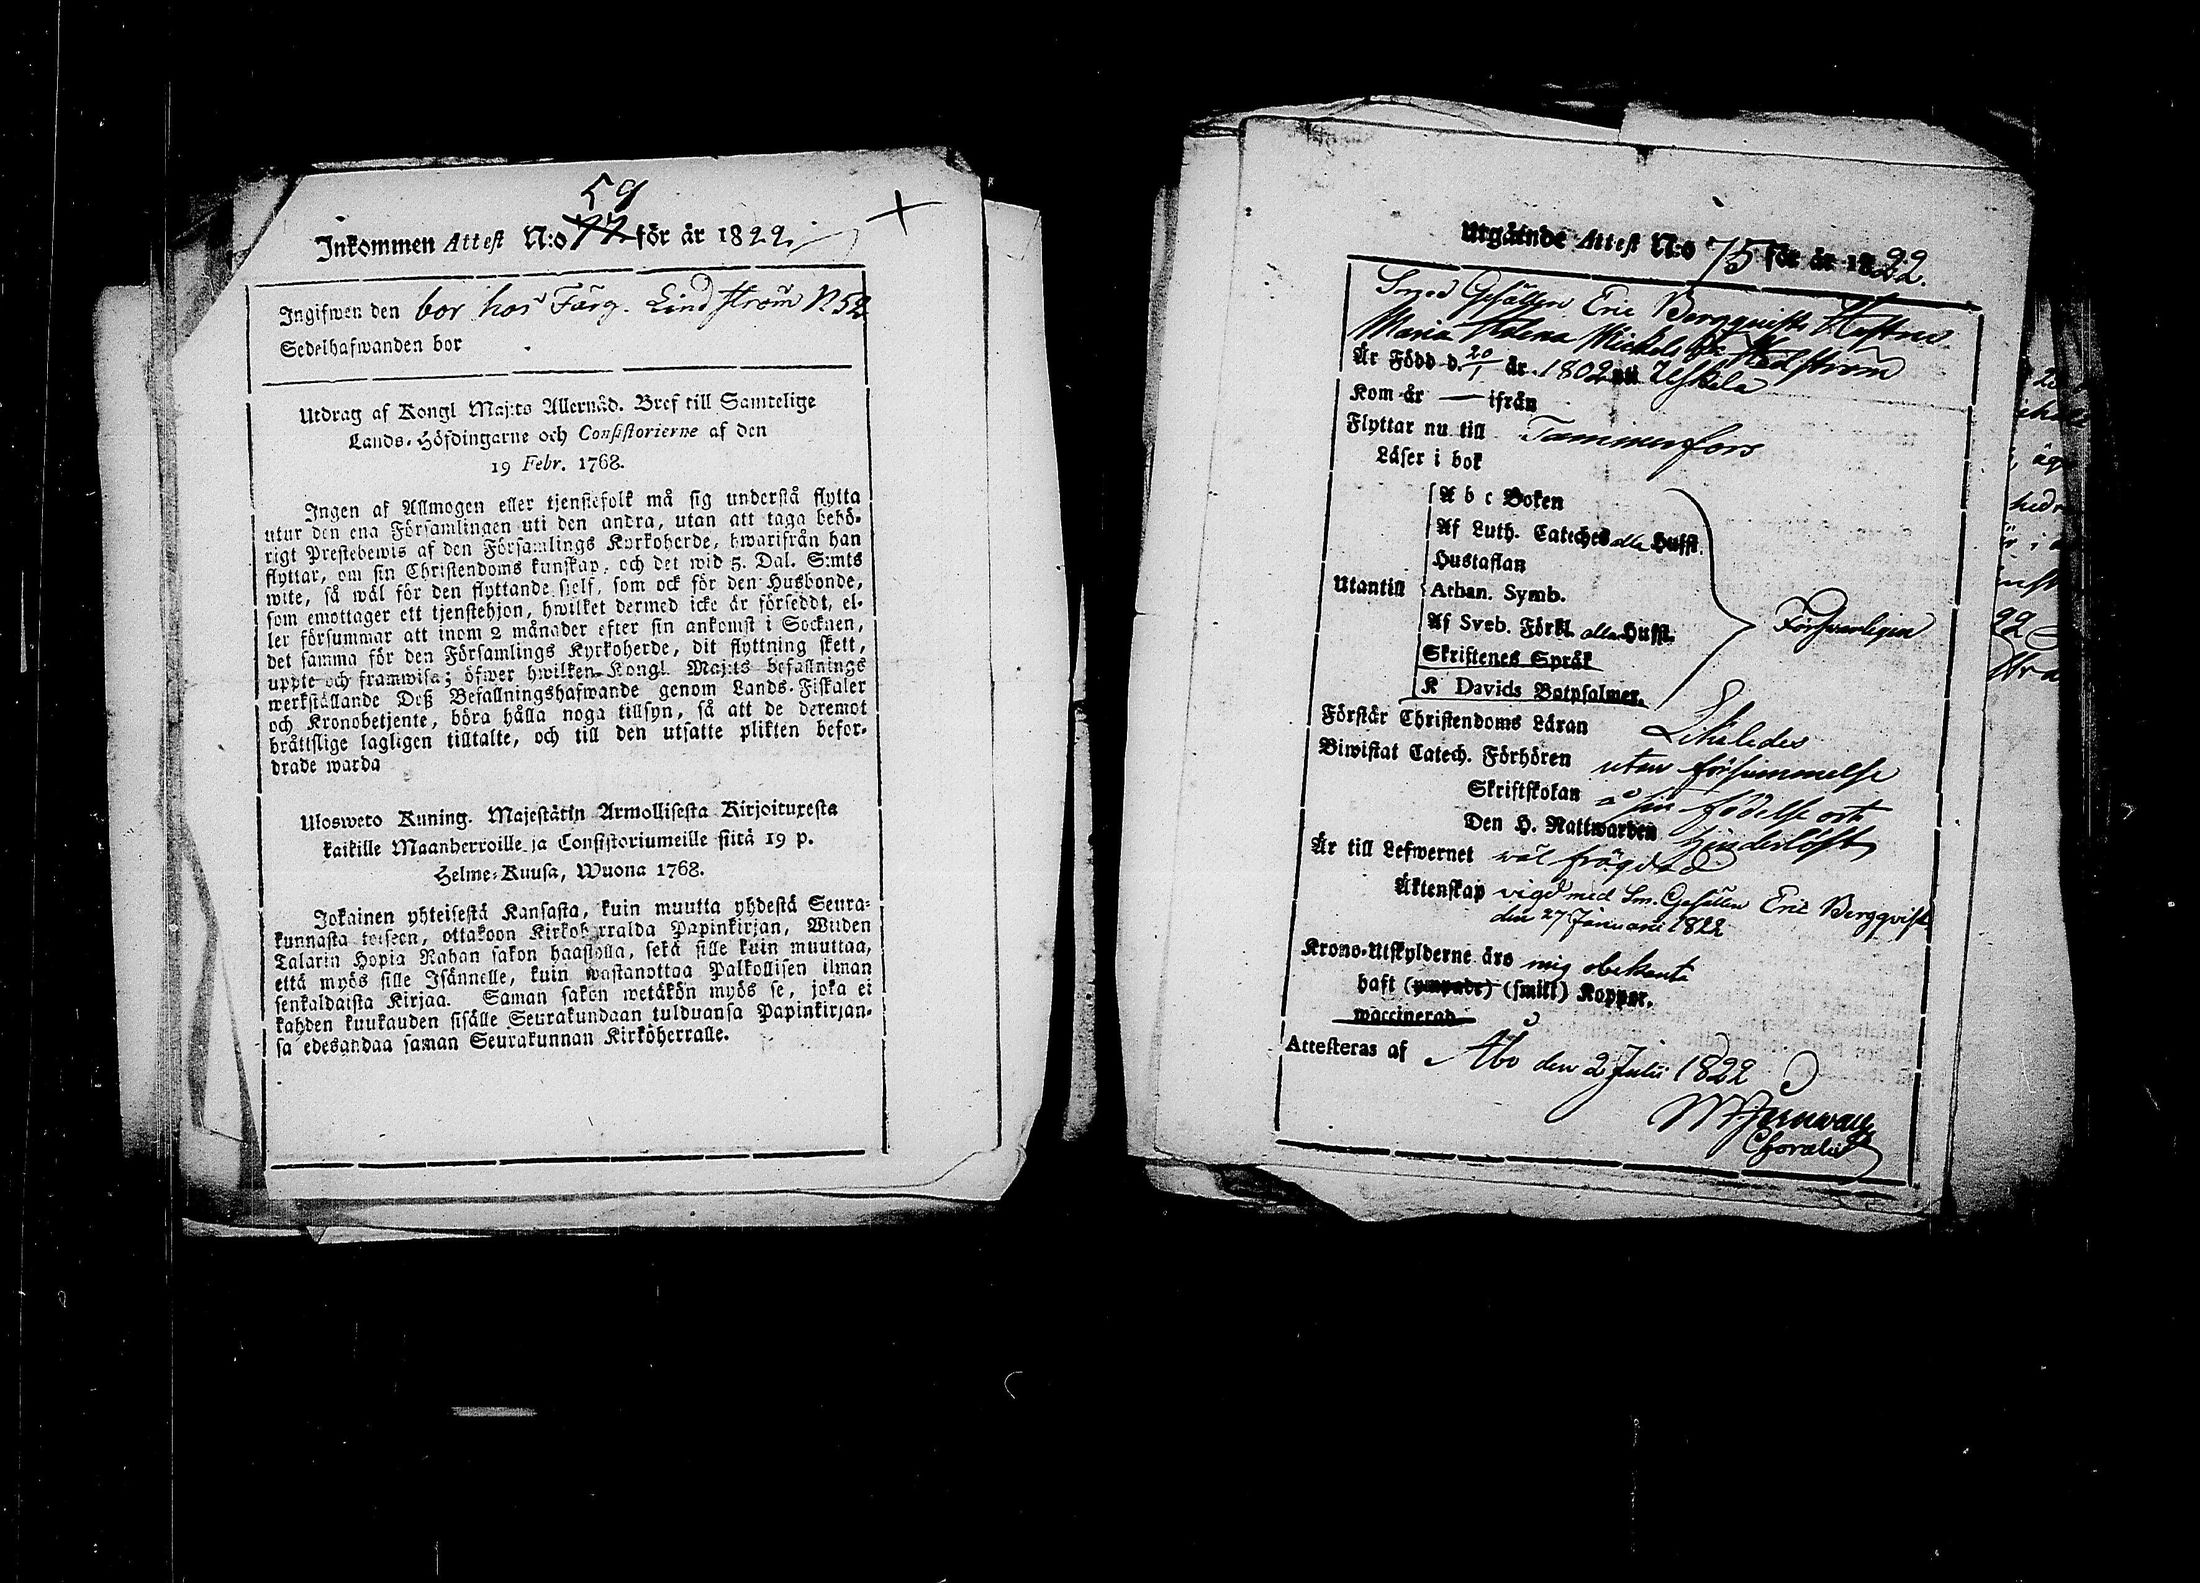 59
Inkommen Attest N:o 77 för år 1822.
Ingifwen den bor hos Färg. Lindström N 52
Sedelhafwanden bor
Utdrag af Kongl Maj:ts Allernåd. Bref till Samtelige
Lands-Höfdingarne och Consistorierne af den
19 Febr. 1768.
Ingen af Allmogen eller tjenstefolk må sig understå flytta
utur den ena Församlingen uti den andra, utan att taga behö-
rigt Prestebewis af den Församlings Kyrkoherde, hwarifrån han
flyttar, om sin Christendoms kunskap, och det wid 5. Dal. S:mts
wite, så wäl för den flyttande sjelf, som ock för den Husbonde,
som emottager ett tjenstehjon, hwilket dermed icke är försedt, el-
ler försummar att inom 2 månader efter sin ankomst i Socknen,
det samma för den Församlings Kyrkoherde, dit flyttning skett,
uppte och framwisa; öfwer hwilken Kongl Maj:ts befallnings
werkställande Deß Befallningshafwande genom Lands-Fiskaler
och Kronobetjente, böra hålla noga tillsyn, så att de deremot
bråttslige lagligen tilltalte, och till den utsatte plikten befor-
drade warda
Ulosweto Kuning. Majestätin Armollisesta Kirjoituxesta
kaikille Maanherroille ja Consistoriumeille siitä 19 p.
Helme-Kuusa, Wuona 1768.
Jokainen yhteisestä Kansasta, kuin muutta yhdestä Seura-
kunnasta toiseen, ottakoon Kirkoherralda Papinkirjan, Wiiden
Talarin Hopia Rahan sakon haastolla, sekä sille kuin muuttaa,
että myös sille Isännelle, kuin wastanottaa Palkollisen ilman
senkaldaista Kirjaa. Saman sakon wetäkön myös se, joka ei
kahden kuukauden sisälle Seurakundaan tulduansa Papinkirjan-
sa edesandaa saman Seurakunnan Kirköherralle.
Utgående Attest N:o 75 för år 1822.
Smed Gesällen Eric Bergquists Hustru
Maria Helena Michels dr Hedström
Är Född d. 20/1 år 1802 uti Uskela
Kom år — ifrån
Flyttar nu till Tammerfors
Läser i bok
A b c Boken
Af Luth. Cateches alla Hufst.
Hustaflan
Utantill Athan. Symb.
Af Sveb. Förkl. alla Hufst.
Skriftenes Språk
K Davids Botpsalmer.
Försvarligen
Förstår Christendoms Läran Likaledes
Biwistat Catech. Förhören utan försummelse
Skriftskolan å sin födelse ort
Den H. Nattwarden hinderlöst
Är till Lefwernet wäl frägdad
Äktenskap vigd med Sm. Gesällen Eric Bergqvist
den 27 Januarii 1822
Krono-Utskylderne äro mig obekanta
haft (ympade) (smitt) Koppor.
waccinerad
Attesteras af Åbo den 2 Julii 1822